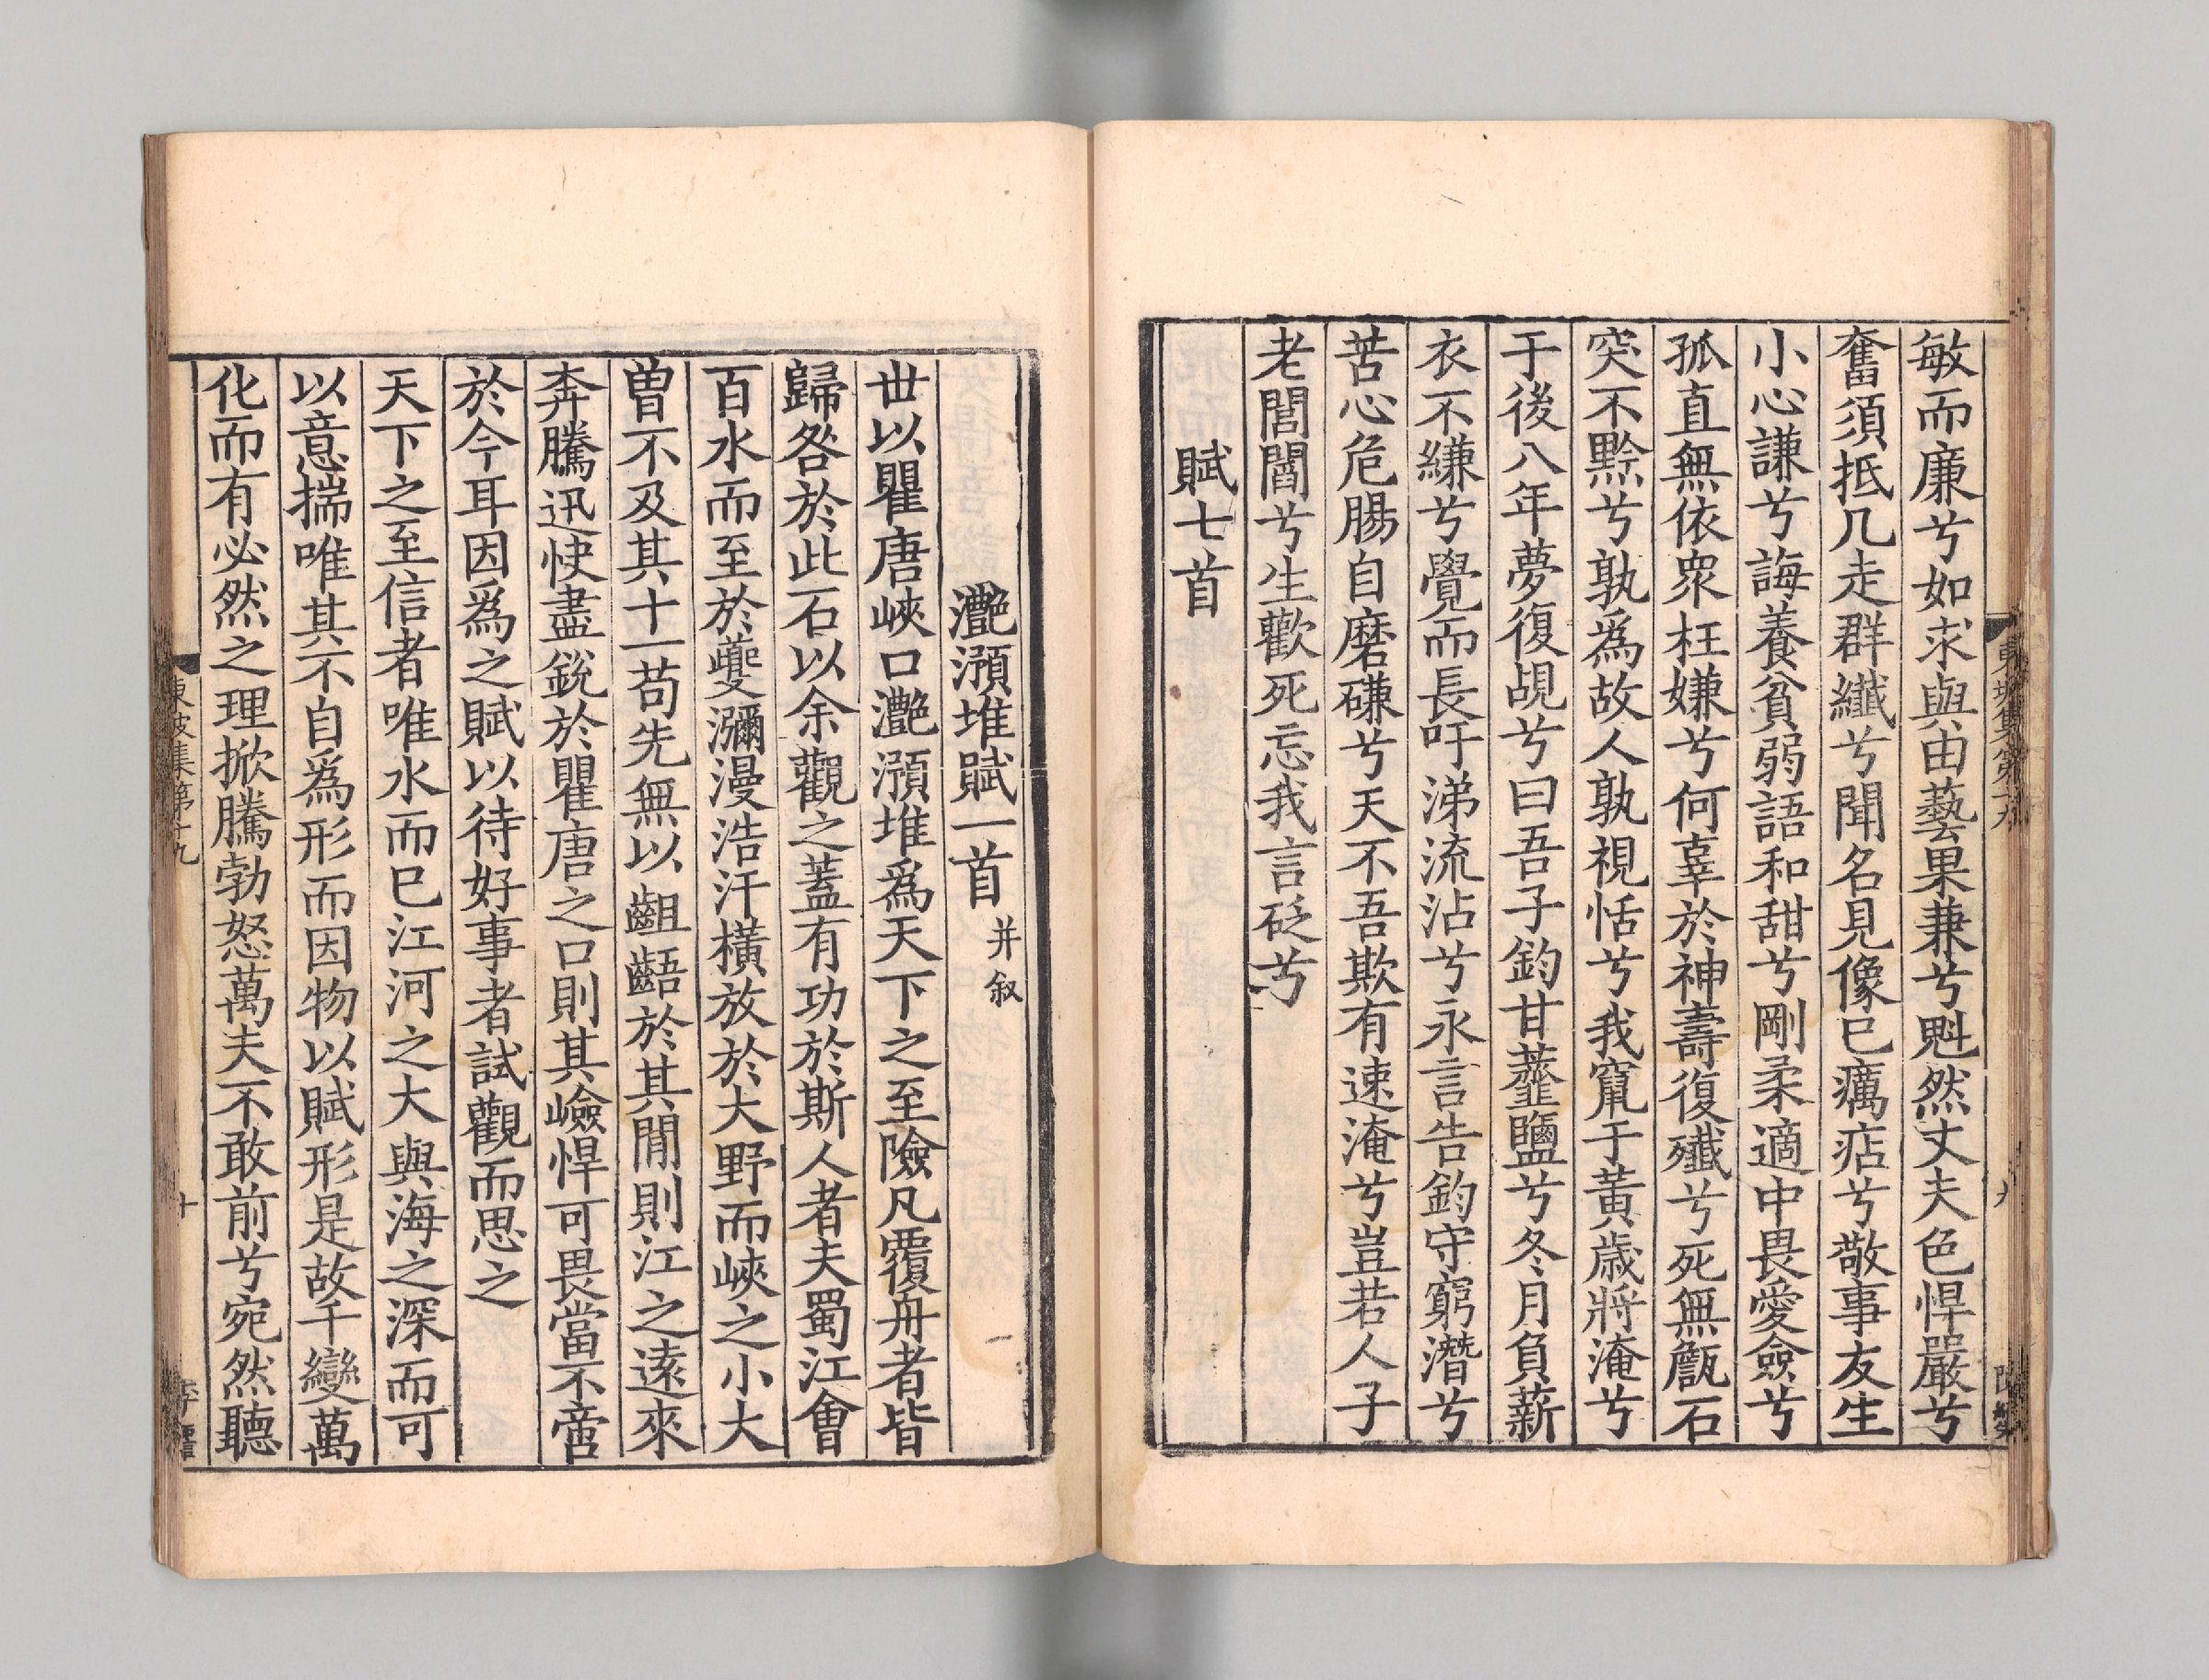 敏而廉兮如求與由藝果兼兮魁然丈夫色悍嚴兮
奮須抵几走群纖兮聞名見像已癘痁兮敬事友生
小心謙兮誨養貧弱語和甜兮剛柔適中畏愛僉兮
孤直無依衆枉嫌兮何辜於神壽復殲兮死無甔石
突不黔兮孰爲故人孰視恬兮我竄于黃歲將淹兮
于後八年夢復覘兮曰吾子鈞甘虀鹽兮冬月負薪
衣不縑兮覺而長吁涕流沾兮永言告鈞守窮潛兮
苦心危腸自磨磏兮天不吾欺有速淹兮豈若人子
老閭閻兮生歡死忘我言砭兮
賦七首
灧澦堆賦一首 并叙
世以瞿唐峽口灧澦堆爲天下之至險凡覆舟者皆
歸咎於此石以余觀之蓋有功於斯人者夫蜀江會
百水而至於夔瀰漫浩汗橫放於大野而峽之小大
曾不及其十一苟先無以齟齬於其間則江之遠來
奔騰迅快盡銳於瞿唐之口則其嶮悍可畏當不啻
於今耳因爲之賦以待好事者試觀而思之
天下之至信者唯水而已江河之大與海之深而可
以意揣唯其不自爲形而因物以賦形是故千變萬
化而有必然之理掀騰勃怒萬夫不敢前兮宛然聽
東坡集第十九
十